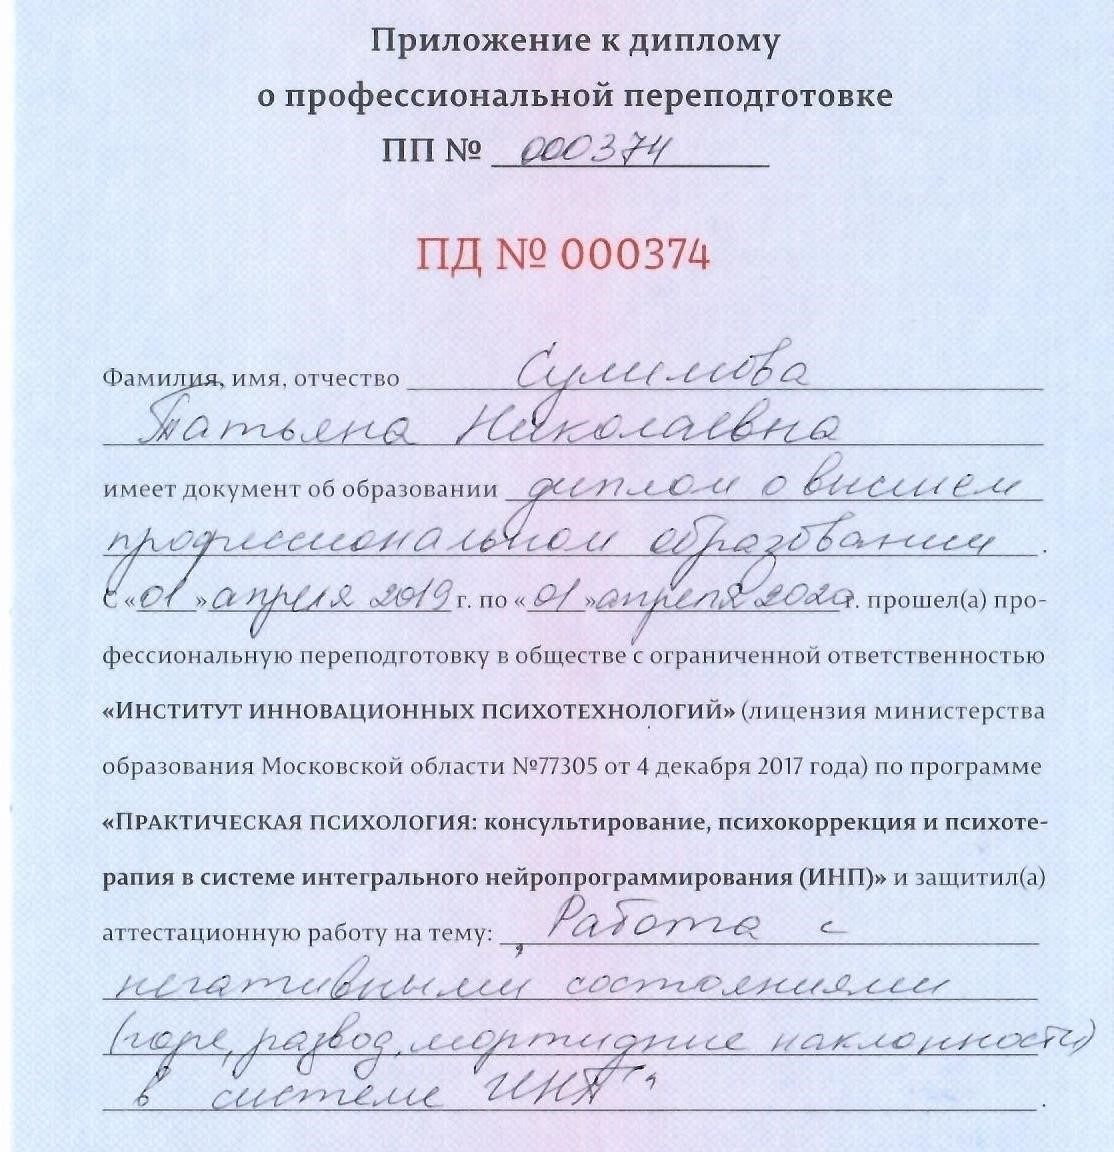 Приложение к диплому
о профессиональной переподготовке
ПП № 000374
ПД № 000374
Фамилия, имя, отчество Сулимова
Татьяна Николаевна
имеет документ об образовании диплом о высшем
профессиональном образовании.
С «01» апреля 2019 г. по «01» апреля 2020 г. прошел(а) про-
фессиональную переподготовку в обществе с ограниченной ответственностью
«ИНСТИТУТ ИННОВАЦИОННЫХ ПСИХОТЕХНОЛОГИЙ» (лицензия министерства
образования Московской области №77305 от 4 декабря 2017 года) по программе
«ПРАКТИЧЕСКАЯ ПСИХОЛОГИЯ: консультирование, психокоррекция и психоте-
рапия в системе интегрального нейропрограммирования (ИНП)» и защитил(а)
аттестационную работу на тему: „Работа с
негативными состояниями
(горе, развод, мортидные наклонности)
в системе ИНП“.